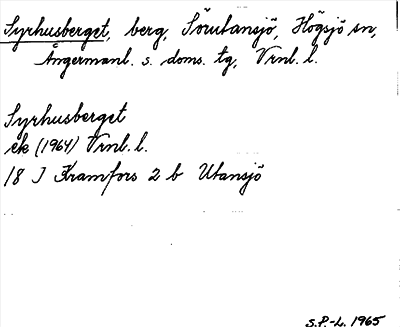 Syrhusberget, berg, Sörutansjö, Högsjö sn,
Ångermanl. s. doms. tg, Vrnl. l.
Syrhusberget
ek (1964) Vrnl. l.
18 J Kramfors 2 b Utansjö
S.P.-L. 1965